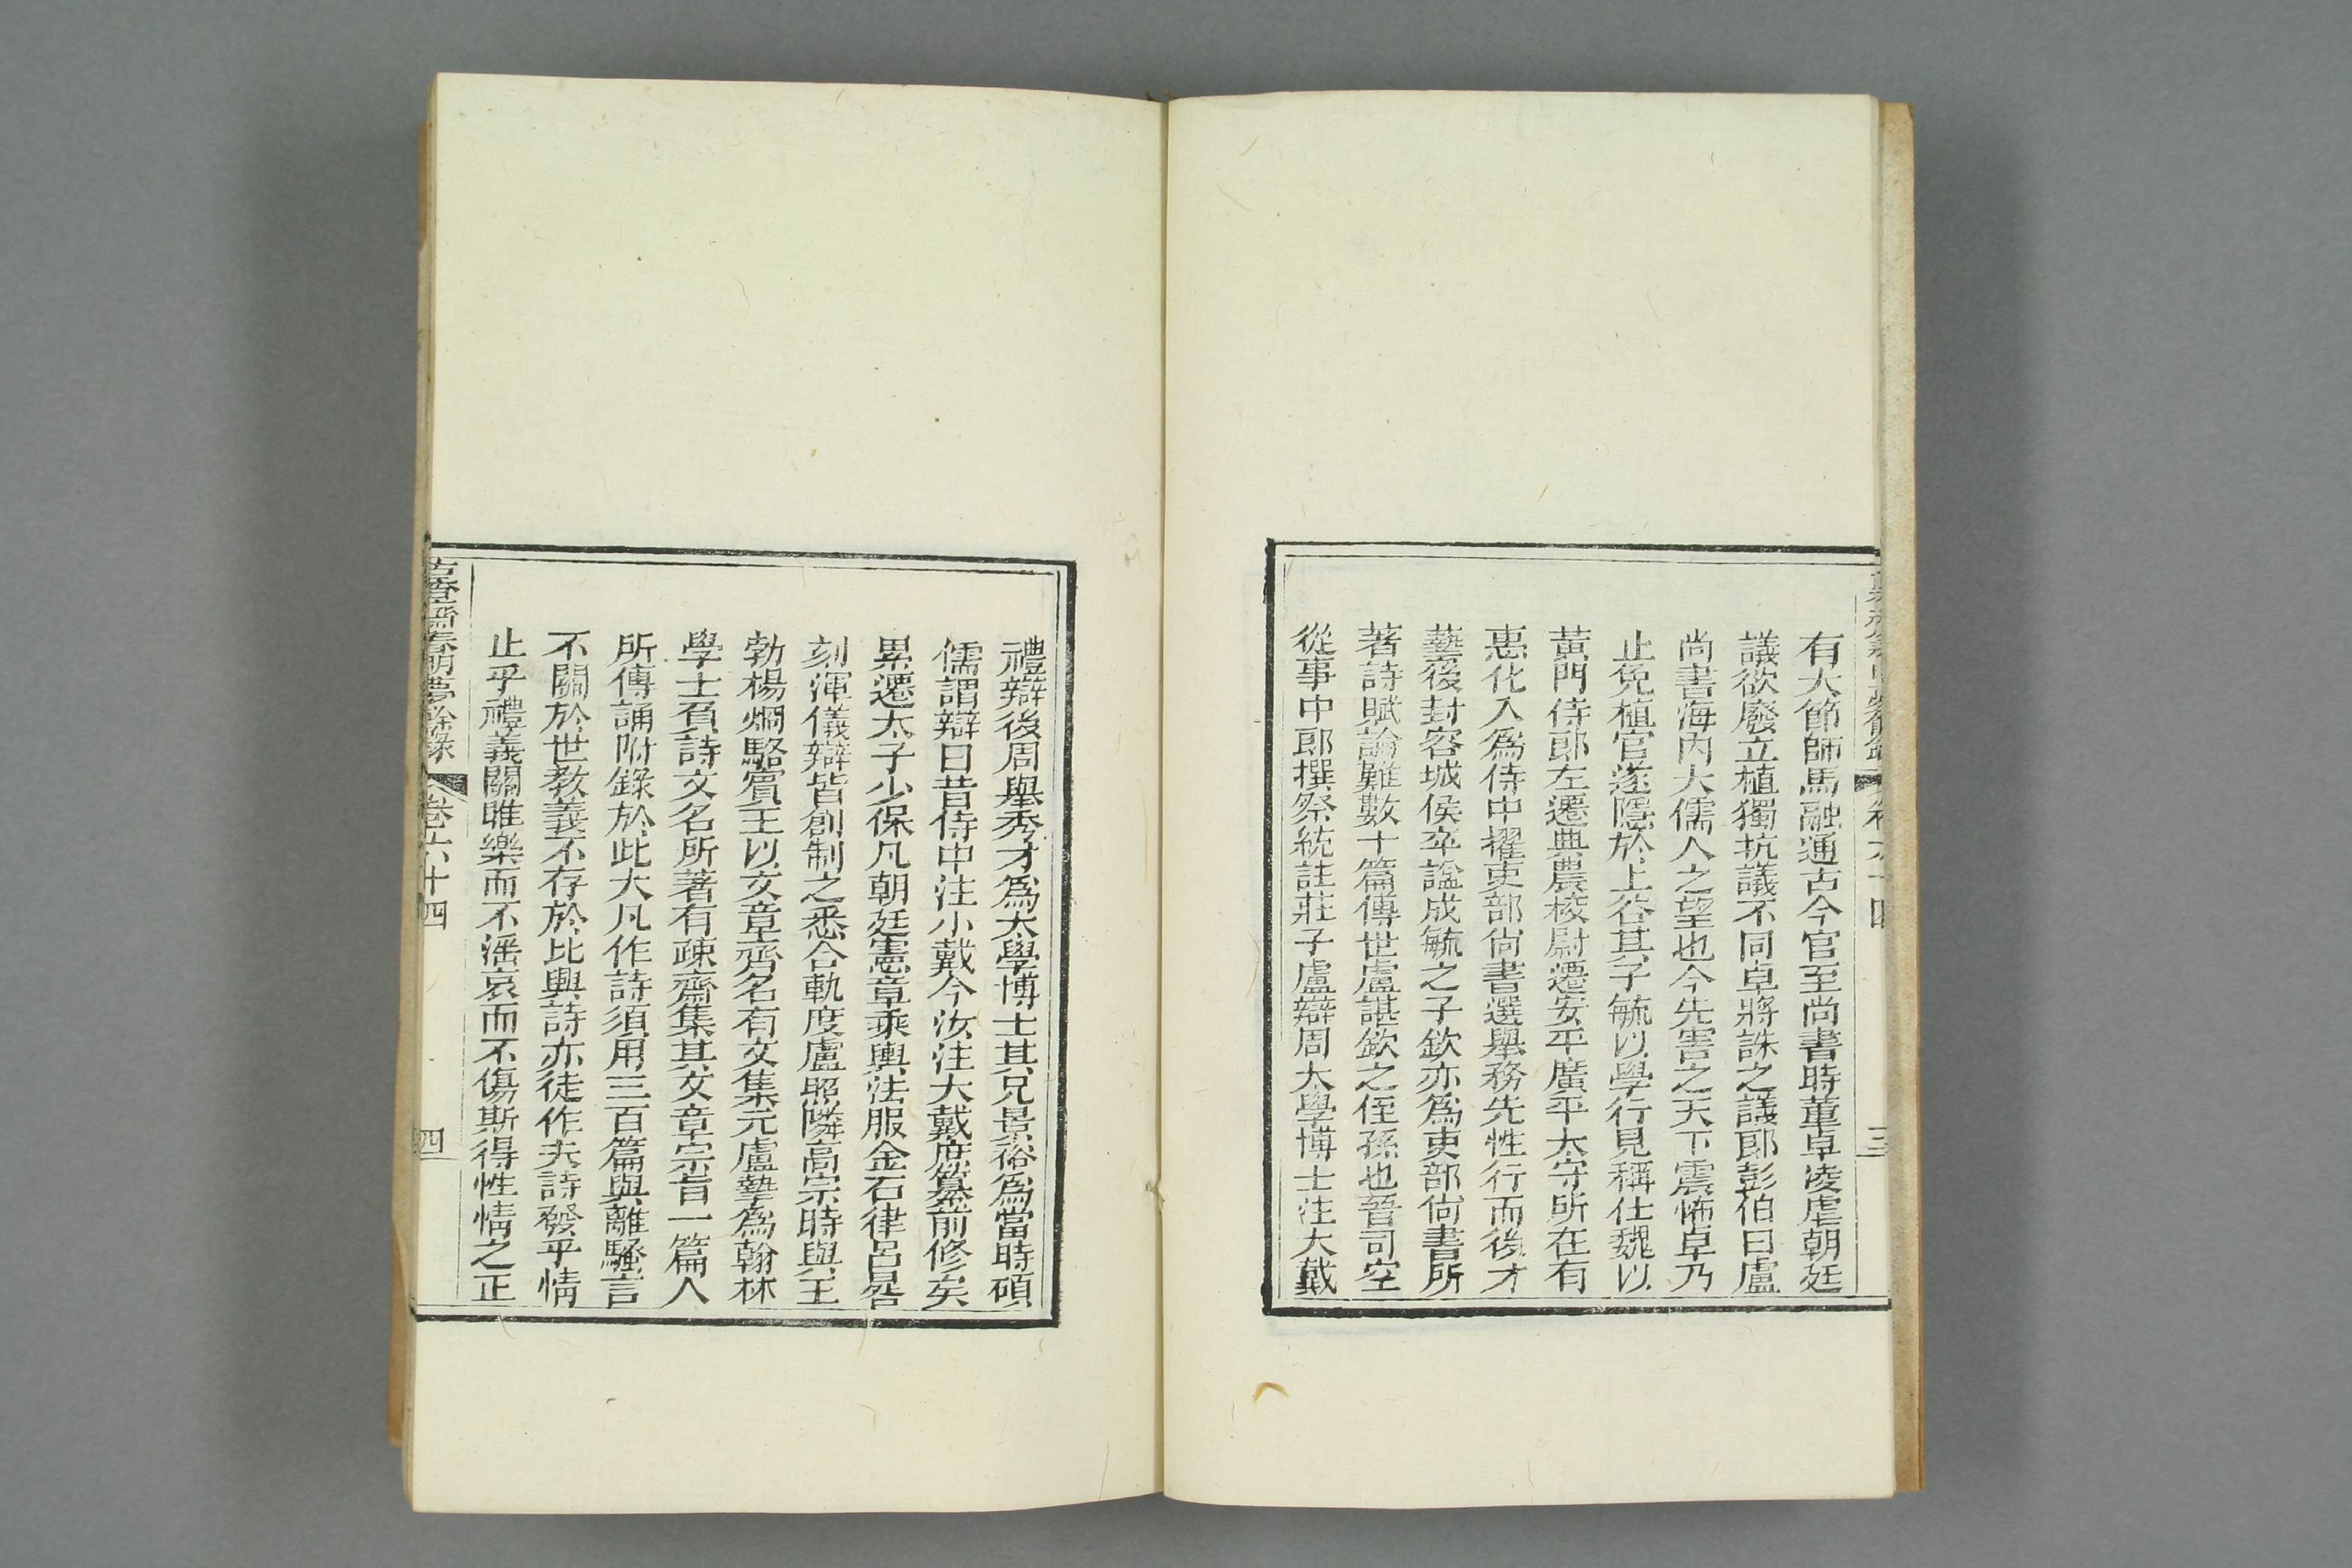 有大節師馬融通古今官至尚書時董卓凌虐朝廷
議欲廢立植獨抗議不同卓將誅之議郎彭伯曰盧
尚書海內大儒人之望也今先害之天下震怖卓乃
止免植官遂隱於上谷其子毓以學行見稱仕魏以
黃門侍郎左遷典農校尉遷安平廣平太守所在有
惠化入為侍中擢吏部尚書選舉務先性行而後才
藝後封容城侯卒諡成毓之子欽亦為吏部尚書所
著詩賦論難數十篇傳世盧諶欽之侄孫也晉司空
從事中郎撰祭統註莊子盧辯周大學博士注大戴
禮辯後周舉秀才為太學博士其兄景裕為當時碩
儒謂辯曰昔侍中注小戴今汝注大戴庶纂前修矣
累遷太子少保凡朝廷憲章乘輿法服金石律呂晷
刻渾儀辯皆創制之悉合軌度盧照隣高宗時與王
勃楊烱駱賓王以文章齊名有文集元盧摯為翰林
學士負詩文名所著有疎齋集其文章宗旨一篇人
所傳誦附錄於此大凡作詩須用三百篇與離騷言
不關於世教義不存於比興詩亦徒作夫詩發乎情
止乎禮義關雎樂而不滛哀而不傷斯得性情之正
古香齋春明夢餘錄 卷六十四 四